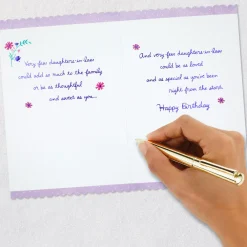 Very few daughters-in-law
could add so much to the family
or be as thoughtful
and sweet as you...
And very few daughters-in-law
could be as loved
and as special as you've been
right from the start.
Happy Birthday